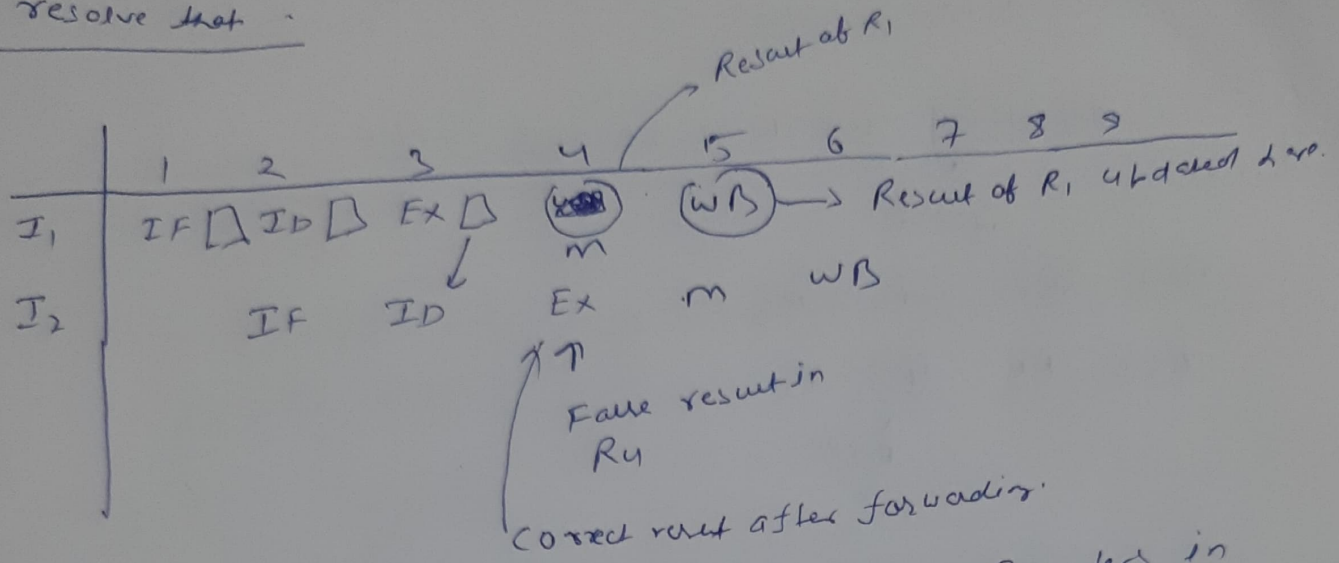 resolve that .
Result of R1
1 2 3 4 5 6 7 8 9
I1 IF ID EX M WB → Result of R1 updated here.
I2 IF ID EX M WB
False result in
R4
Correct result after forwarding.
in